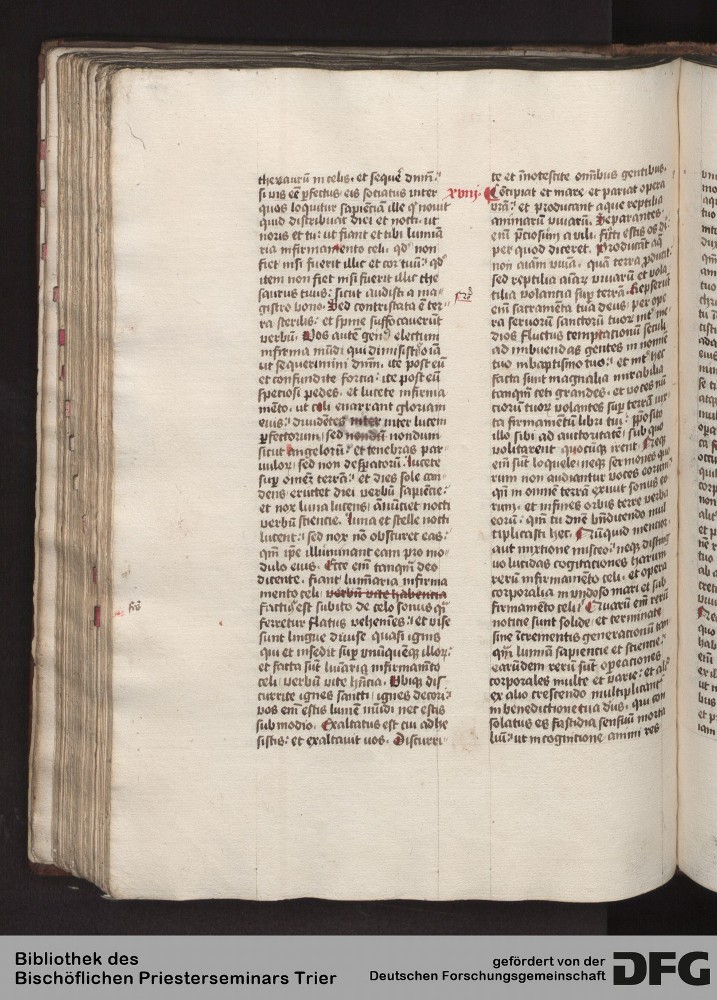 thezaurū in celis· et sequeʳ dnm̄:
si vis eē ꝑfectus· eis sociatus inter
quos loquitur sapiēciā ille qͥ nouit
quid distribuat diei et nocti· ut
noris et tu: ut fiant et tibi lumiā
ria in firmamento celi· qd' non
fiet nisi fuerit illic et cor tuū: qd'
item non fiet nisi fuerit illic the
saurus tuus: sicut audisti a ma
gistro bono· Sed contristata ē ter
ra sterilis: et spine suffocauerūt
verbū· Vos autē genꝰ electum
infirma mūdi qui dimisistis oīa
ut sequerimini dnm̄· ite post eū
et confundite forcia: ite post eū
speciosi pedes· et lucete in firma
mēto· ut celi enarrant gloriam
eius: diuidētes inter inter lucem
ꝑfectorum· sed nondū nondum
sicut angelorū: et tenebras par
uulorꝫ sed non despatorū· lucete
suꝑ omnēʒ terrā: et dies sole can
dens eructet diei verbū sapiēcie:
et nox luna lucens· ānūciet nocti
verbū sciencie· Luna et stelle nocti
lucent: sed nox nō obscuret eas·
qm̄ ip̄e illuminant eam pro mo
dulo eius· Ecce enī tanqm̄ deo
dicente· fiant lumīaria in firma
mento celi· verbū vite habencia
factus est subito de celo sonus qͥ
ferretur flatus vehemēs: et vise
sunt lingue diuise quasi ignis
qui et insedit suꝑ vnūquēqꝫ illorꝫ:
et facta sūt lumīaria in firmamēto
celi verbum vite hn̄cia· Vbiqꝫ dis
currite ignes sancti· ignes decori:
vos enī estis lumē mūdi nec estis
sub modio· Exaltatus est cui adhe
sistis: et exaltauit vos· Discurri
te et innotescite omībus gentibus·
xviij· Concipiat et mare· et pariat opera
vrā: et producant aque reptilia
animarū viuarū· Separantes
enī p̄ciosum a vili· facti estis os di
per quod diceret· Producāt aq̄
non aīam viuā· quā terra ꝓducit:
sed reptilia aīarꝫ viuarū et vola
tilia volancia suꝑ terrā· Repserūt
enī sacramēta tua deus· per ope
ra seruorū sanctorū tuorꝫ int' me
dios fluctus temptacionū seculi
ad imbuendas gentes in nomīe
tuo in baptismo tuo: et int' hec
facta sunt magnalia mirabilia
tanqm̄ ceti grandes· et voces nū
ciorū tuorꝫ volantes suꝑ terrā iux
ta firmamētū libri tui: p̄posito
illo sibi ad auctoritatē sub quo
volitarent quocūqꝫ irent· Neqꝫ
enī sūt loquele· neqꝫ sermones quo
rum non audiantur voces eorum:
qn̄ in omnē terrā exiuit sonus eo
rum· et in fines orbis terre verba
eorū: qm̄ tu dn̄e bn̄dicendo mul
tiplicasti hec· Nūquid mencior
aut mixtione misceo: neqꝫ disting
uo lucidas cogitaciones harum
rerū in firmamēto celi· et opera
corporalia in vndoso mari et sub
firmamēto celi: Quarū enī rerū
noticie sunt solide· et terminate
sine īcrementis generacionū tan
qm̄ lumīa sapiencie et sciencie:
earūdem rerū sūt operaciones
corporales multe et varie: et aliꝰ
ex alio crescendo multiplicant'
in benedictione tua dꝰ· qui con
solatus es fastidia sensuū morta
liū: ut in cognicione animi res
Bibliothek des
Bischöflichen Priesterseminars Trier
gefördert von der
Deutschen Forschungsgemeinschaft
DFG